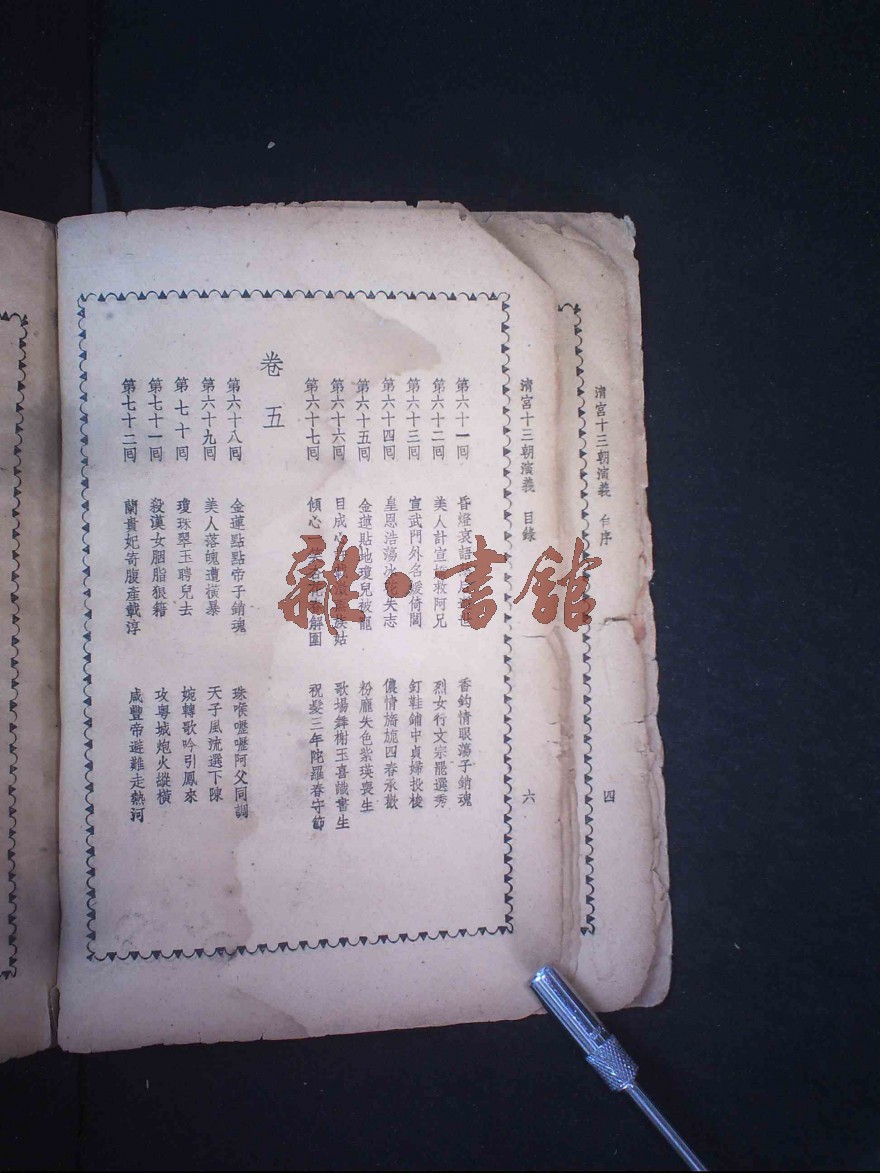 清宮十三朝演義 自序 四
清宮十三朝演義 目錄 六
第六十一回 昏燈哀語 香鈎情眼蕩子銷魂
第六十二回 美人計宣 救阿兄 烈女行文宗罷選秀
第六十三回 宣武門外名媛倚閭 釘鞋鋪中貞婦投梭
第六十四回 皇恩浩蕩冰 失志 儂情旖旎四春承歡
第六十五回 金蓮貼地瓊兒被寵 粉龐失色紫瑛喪生
第六十六回 目成心 族姑 歌場舞榭玉喜識書生
第六十七回 傾心一笑 解圍 祝髮三年陀羅春守節
卷五
第六十八回 金蓮點點帝子銷魂 珠喉嚦嚦阿父同調
第六十九回 美人落魄遭橫暴 天子風流選下陳
第七十回 瓊珠翠玉聘兒去 婉轉歌吟引鳳來
第七十一回 殺漢女胭脂狼籍 攻粵城炮火縱橫
第七十二回 蘭貴妃奇腹產載淳 咸豐帝避難走熱河
雜·書館